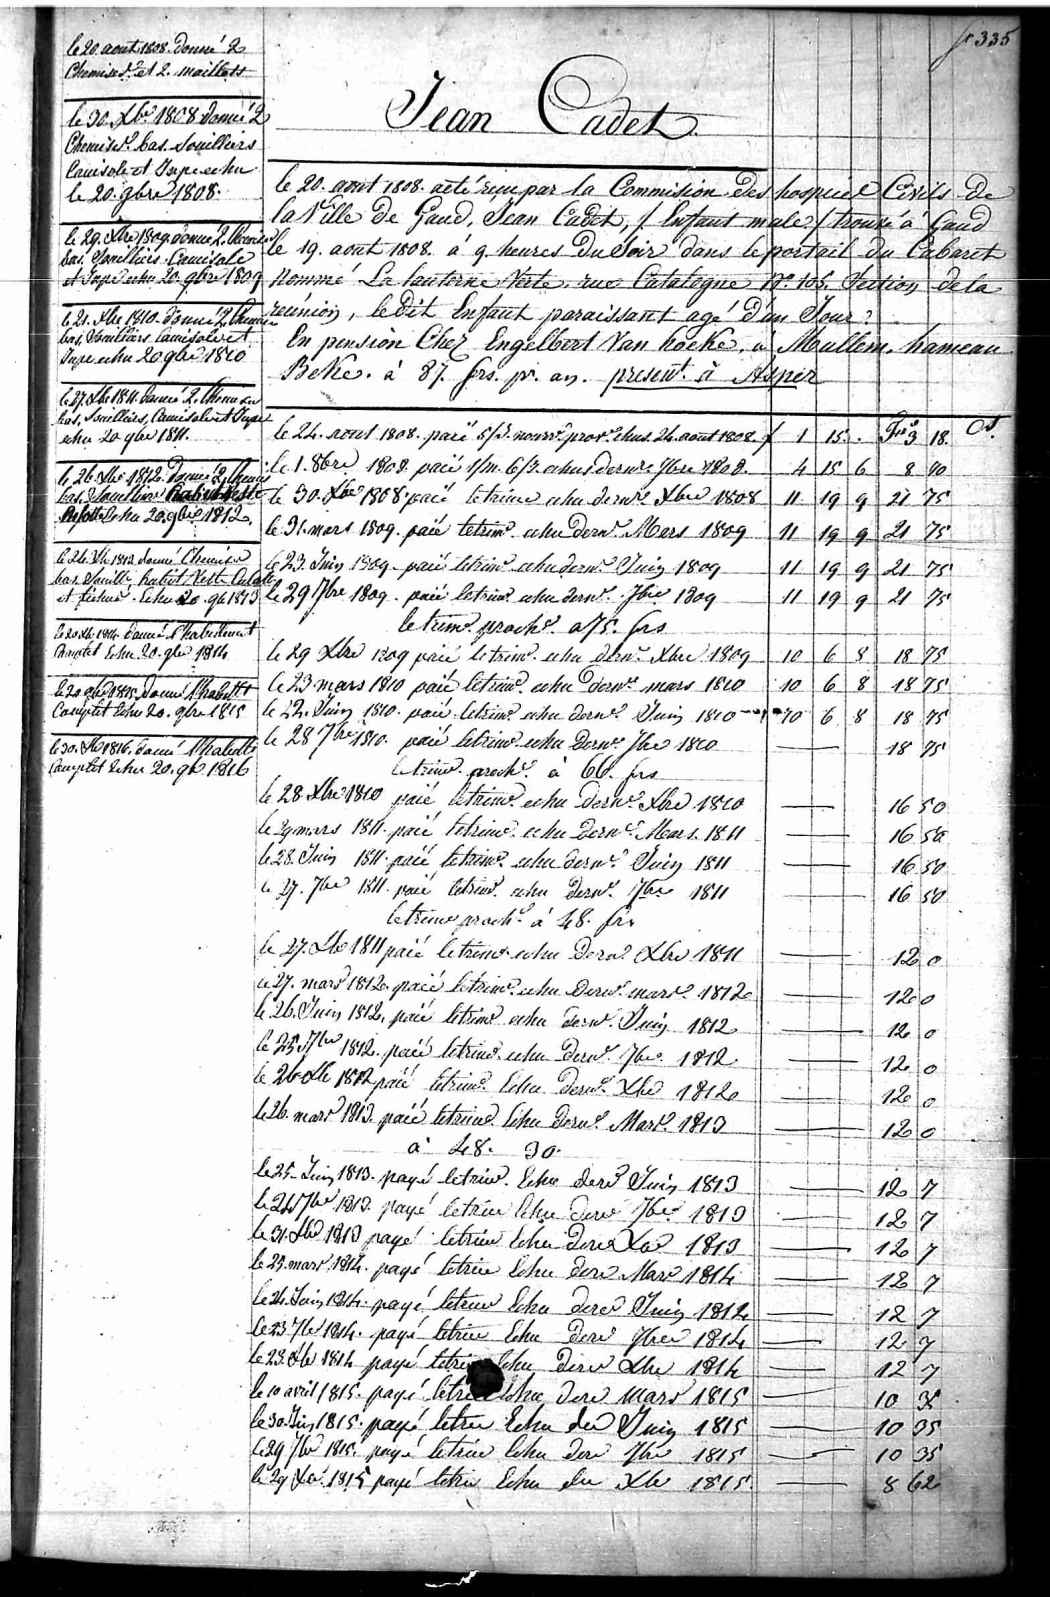 fo 335
Jean Cadet.
le 20. aout 1808. donné 2
Chemises et 2. maillots
le 30. Xbre 1808 donné 2
Chemises. bas. Souilliers
Camisole et Jupe echu
le 20. 9bre 1808.
le 29. Xbre 1809. donné 2. Chemises
bas. Souilliers. Camisole
et Jupe echu 20. 9bre 1809
le 21. Xbre 1810. donné 2 Chemises
bas. Souilliers Camisole et
Jupe echu 20 9bre 1810
le 27. Xbre 1811. donné 2. Chemises
bas, Souilliers, Camisole et Jupe
echu 20 9bre 1811.
le 26. Xbre 1812. donné 2. Chemises
bas. Souilliers habit Veste
echu 20. 9bre 1812.
le 24. Xbre 1813. donné Chemises
bas. Souillis, habit Veste Culotte
et fichu. Echu 20. 9b 1813
le 20 Xb. 1814. donné l'habillement
Complet Echu. 20. 9bre 1814
le 20 9bre 1815. donné l'habillt
Complet Echu 20. 9bre 1815
le 30. Xb 1816. donné l'habillt
Complet Echu 20. 9b 1816
le 20. aout 1808. a été reçu par la Commision des hospices Civils de
la Ville de Gand, Jean Cadet, / Enfant male / trouvé à Gand
le 19. aout 1808. à 9. heures du Soir dans le portail du Cabaret
nommé La lanterne Verte, rue Catalogne No. 105. Section de la
reünion, le dit Enfant paraissant agé d'un Jour.
En pension Chez Engelbert Van hoeke. à Mullem. hameau
Beke. à 87. frs. pr. an. present. à Asper
Frs Cs.
le 24. aout 1808. paié 5/j. nourre. provre. echus 24. aout 1808. f 1 15 . 3 18.
le 1. 8bre 1808 paié 1/m. 6/j. echus dernr. 7bre 1808. 4 15 6 8 90
le 30. Xbre 1808. paié le trime echu dernr. Xbre 1808 11 19 9 21 75
le 31. mars 1809. paié le trime. echu dernr. Mars 1809 11 19 9 21 75
le 23. Juin 1809. paié le trime. echu dernr. Juin 1809 11 19 9 21 75
le 29 7bre 1809. paié le trime. echu dernr. 7bre 1809 11 19 9 21 75
le trime. proche. a 75. frs
le 29 Xbre 1809 paié le trime. echu dernr. Xbre 1809 10 6 8 18 75
le 23 mars 1810 paié le trime. echu dernr. mars 1810 10 6 8 18 75
le 22. Juin 1810. paié le trime. echu dernr. Juin 1810 10 6 8 18 75
le 28 7bre 1810. paié le trime. echu Dernr. 7bre 1810 — 18 75
le trime. proche. à 66. frs
le 28 Xbre 1810 paié le trime. echu dernr. Xbre 1810 — 16 50
le 29 mars 1811. paié le trime. echu dernr. Mars. 1811 — 16 50
le 28. Juin 1811. paié le trime. echu dernr. Juin 1811 — 16 50
le 27. 7bre 1811. paié le trime. echu dernr. 7bre 1811 — 16 50
le trime proche. à 48. frs
le 27. Xbre 1811 paié le trime. echu Dernr. Xbre 1811 — 12 0
le 27. mars 1812. paié le trime. echu Dernr. mars. 1812 — 12 0
le 26. Juin 1812. paié le trime. echu dernr. Juin 1812 — 12 0
le 25 7bre 1812. paié le trime. echu dernr. 7bre. 1812 — 12 0
le 26 Xb 1812 paié le trime. Echu dernr. Xbre 1812 — 12 0
le 26. mars 1813. paié le trime. Echu dernr. Mars. 1813 — 12 0
à 48. 30.
le 25. Juin 1813. payé le trim. Echu derr Juin 1813 — 12 7
le 24 7bre 1813. payé le trim Echu derr 7bre 1813 — 12 7
le 31. Xbre 1813 payé le trim Echu derr Xbre 1813 — 12 7
le 25. mars 1814. payé le trim Echu derr Mars 1814 — 12 7
le 24. Juin 1814. payé le trim Echu derr Juin 1814 — 12 7
le 23 7br 1814. payé le trim Echu derr 7bre 1814 — 12 7
le 23. Xb 1814 payé le trim Echu derr Xbre 1814 — 12 7
le 10 avril 1815. payé le trim Echu derr Mars 1815 — 10 35
le 30. Juin 1815. payé le trim Echu der Juin 1815 — 10 35
le 29 7br 1815. payé le trim Echu der 7br 1815 — 10 35
le 29 Xbr. 1815 payé le trim Echu der Xb 1815. — 8 62